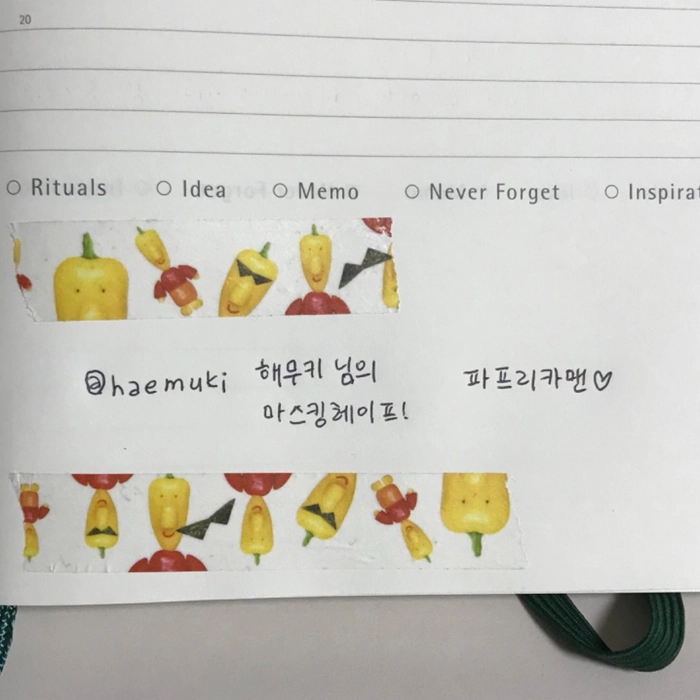 20
○ Rituals ○ Idea ○ Memo ○ Never Forget ○ Inspirat
@haemuki 해무키 님의 파프리카맨♡
마스킹테이프!